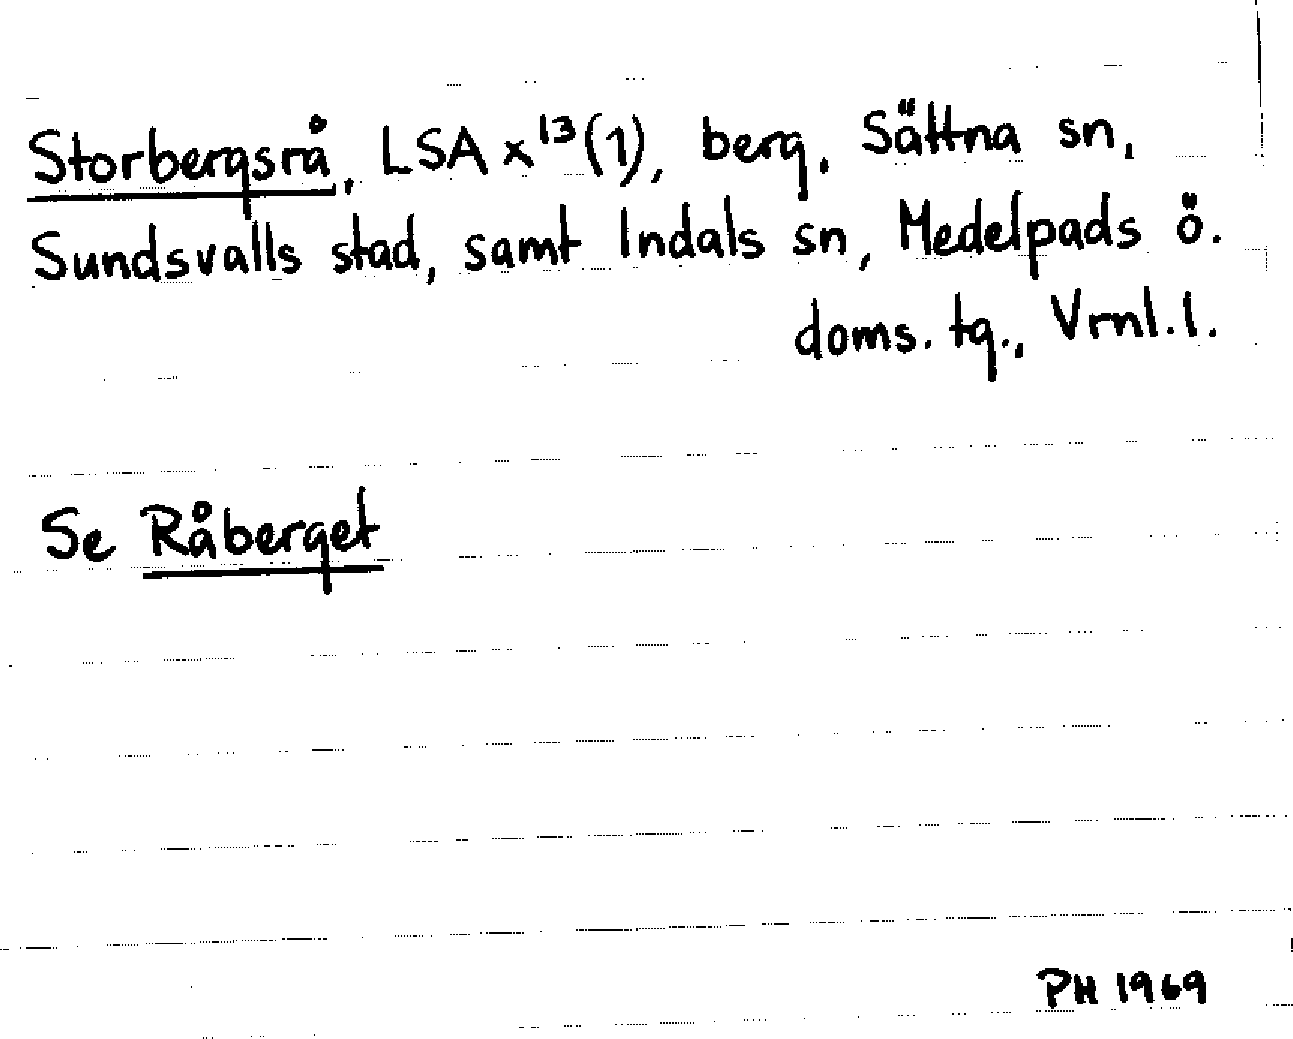 Storbergsrå, LSA x¹³(1), berg, Sättna sn,
Sundsvalls stad, samt Indals sn, Medelpads ö.
doms. tg., Vrnl. l.
Se Råberget
PH 1969